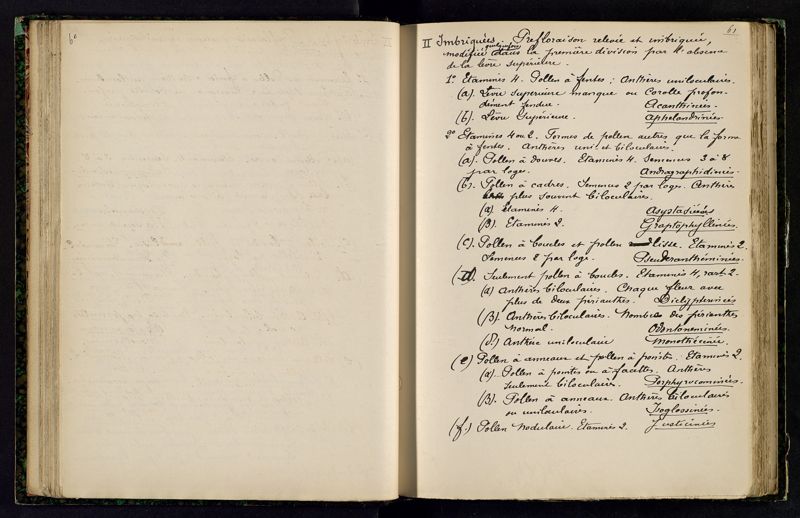 60
61
II Imbriquées. Préfloraison relevée et imbriquée,
quelquefois
modifiée dans la première division par l'absence
de la lèvre supérieure.
1º Etamines 4. Pollen à fentes; Anthères uniloculaires.
(a). Lèvre superieure manque ou Corolle profon-
dément fendue. Acanthinées.
(b). Lèvre Supérieure. Aphelandrinées
2º Etamines 4 ou 2. Formes de pollen autres que la forme
à fentes. Anthères uni et biloculaires.
(a). Pollen à douves. Etamines 4. Semences 3 à 8
par loge. Andrographidinées.
(b). Pollen à cadres. Semences 2 par loge. Anthères
plus souvent biloculaires.
(α) Etamines 4. Asystasinées
(β). Etamines 2. Graptophyllinées.
(c). Pollen à boucles et pollen lisse. Etamines 2.
Semences 2 par loge. Pseuderanthéminées.
(d). Seulement pollen à boucles. Etamines 4, rart 2.
(α) Anthères biloculaires. Chaque fleur avec
plus de deux périanthes. Dicliptérinées
(β). Anthères biloculaires. Nombre des périanthes
normal. Odontoneminées.
(γ) Anthère uniloculaire Monothécinée.
(e) Pollen à anneaux et pollen à pointes. Etamines 2.
(α). Pollen à pointes ou à facettes. Anthères
seulement biloculaires. Porphyrocominées.
(β). Pollen à anneaux. Anthères biloculaires
ou uniloculaires. Isoglossinées.
(f.) Pollen nodulaire. Etamines 2. Justicinées